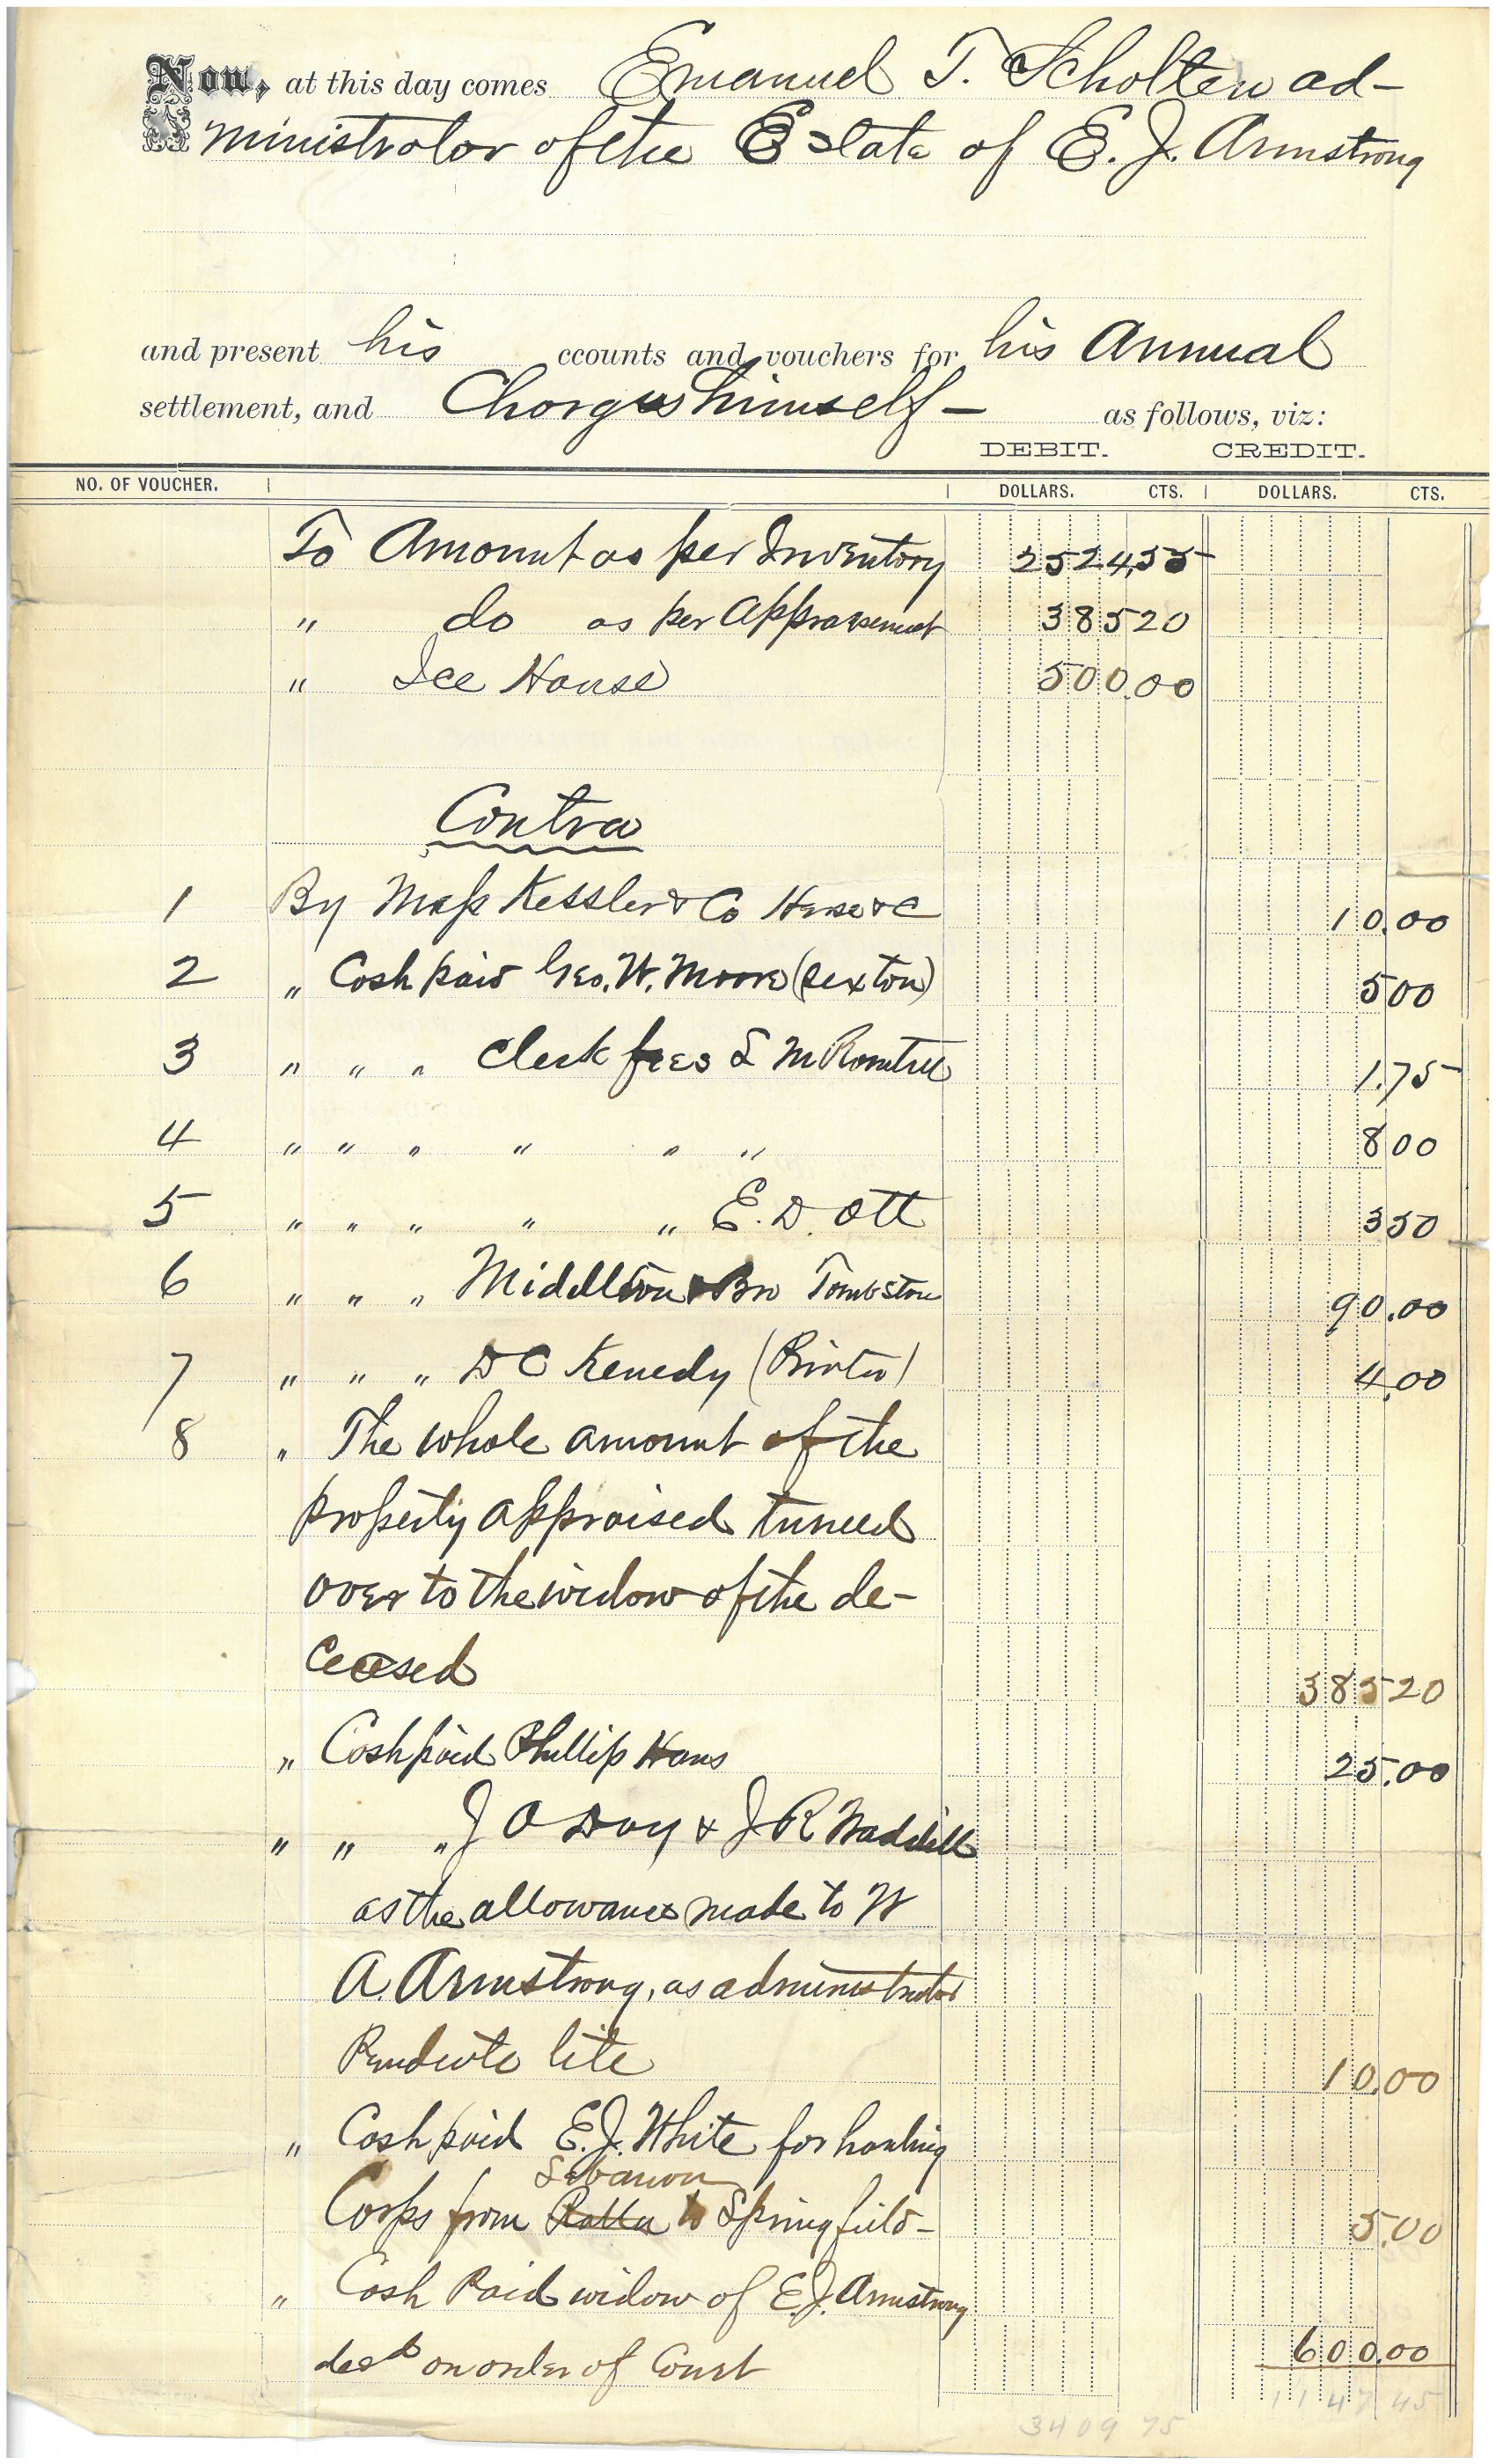 Now, at this day comes Emanuel T. Scholten ad-
ministrator of the Estate of E. J. Armstrong
and present his ccounts and vouchers for his Annual
settlement, and Charges himself — as follows, viz:
DEBIT. CREDIT.
NO. OF VOUCHER. DOLLARS. CTS. DOLLARS. CTS.
To Amount as per Inventory 2524,55
" do as per Appraisement 385 20
" Ice House 500.00
Contra
1 By Mess Kessler & Co Herse &c 10.00
2 " Cash paid Geo. W. Moore (sexton) 5 00
3 " " " Clerk fees L M Rountree 1.75
4 " " " " " " 8 00
5 " " " " " E. D. Ott 3 50
6 " " " Middleton & Bro Tombstone 90.00
7 " " " D C Kenedy (Printer) 4.00
8 " The whole amount of the
property appraised turned
over to the widow of the de-
ceased 385 20
" Cash paid Phillip Hans 25.00
" " " J O Day & J R Waddill
as the allowance made to W
A. Armstrong, as administrator
Pendente lite 10.00
" Cash paid E. J. White for hauling
Lebanon
Corps from Rolla to Springfield — 5.00
" Cash Paid widow of E. J. Armstrong
decd on order of Court 600.00
3409 75 1147 45